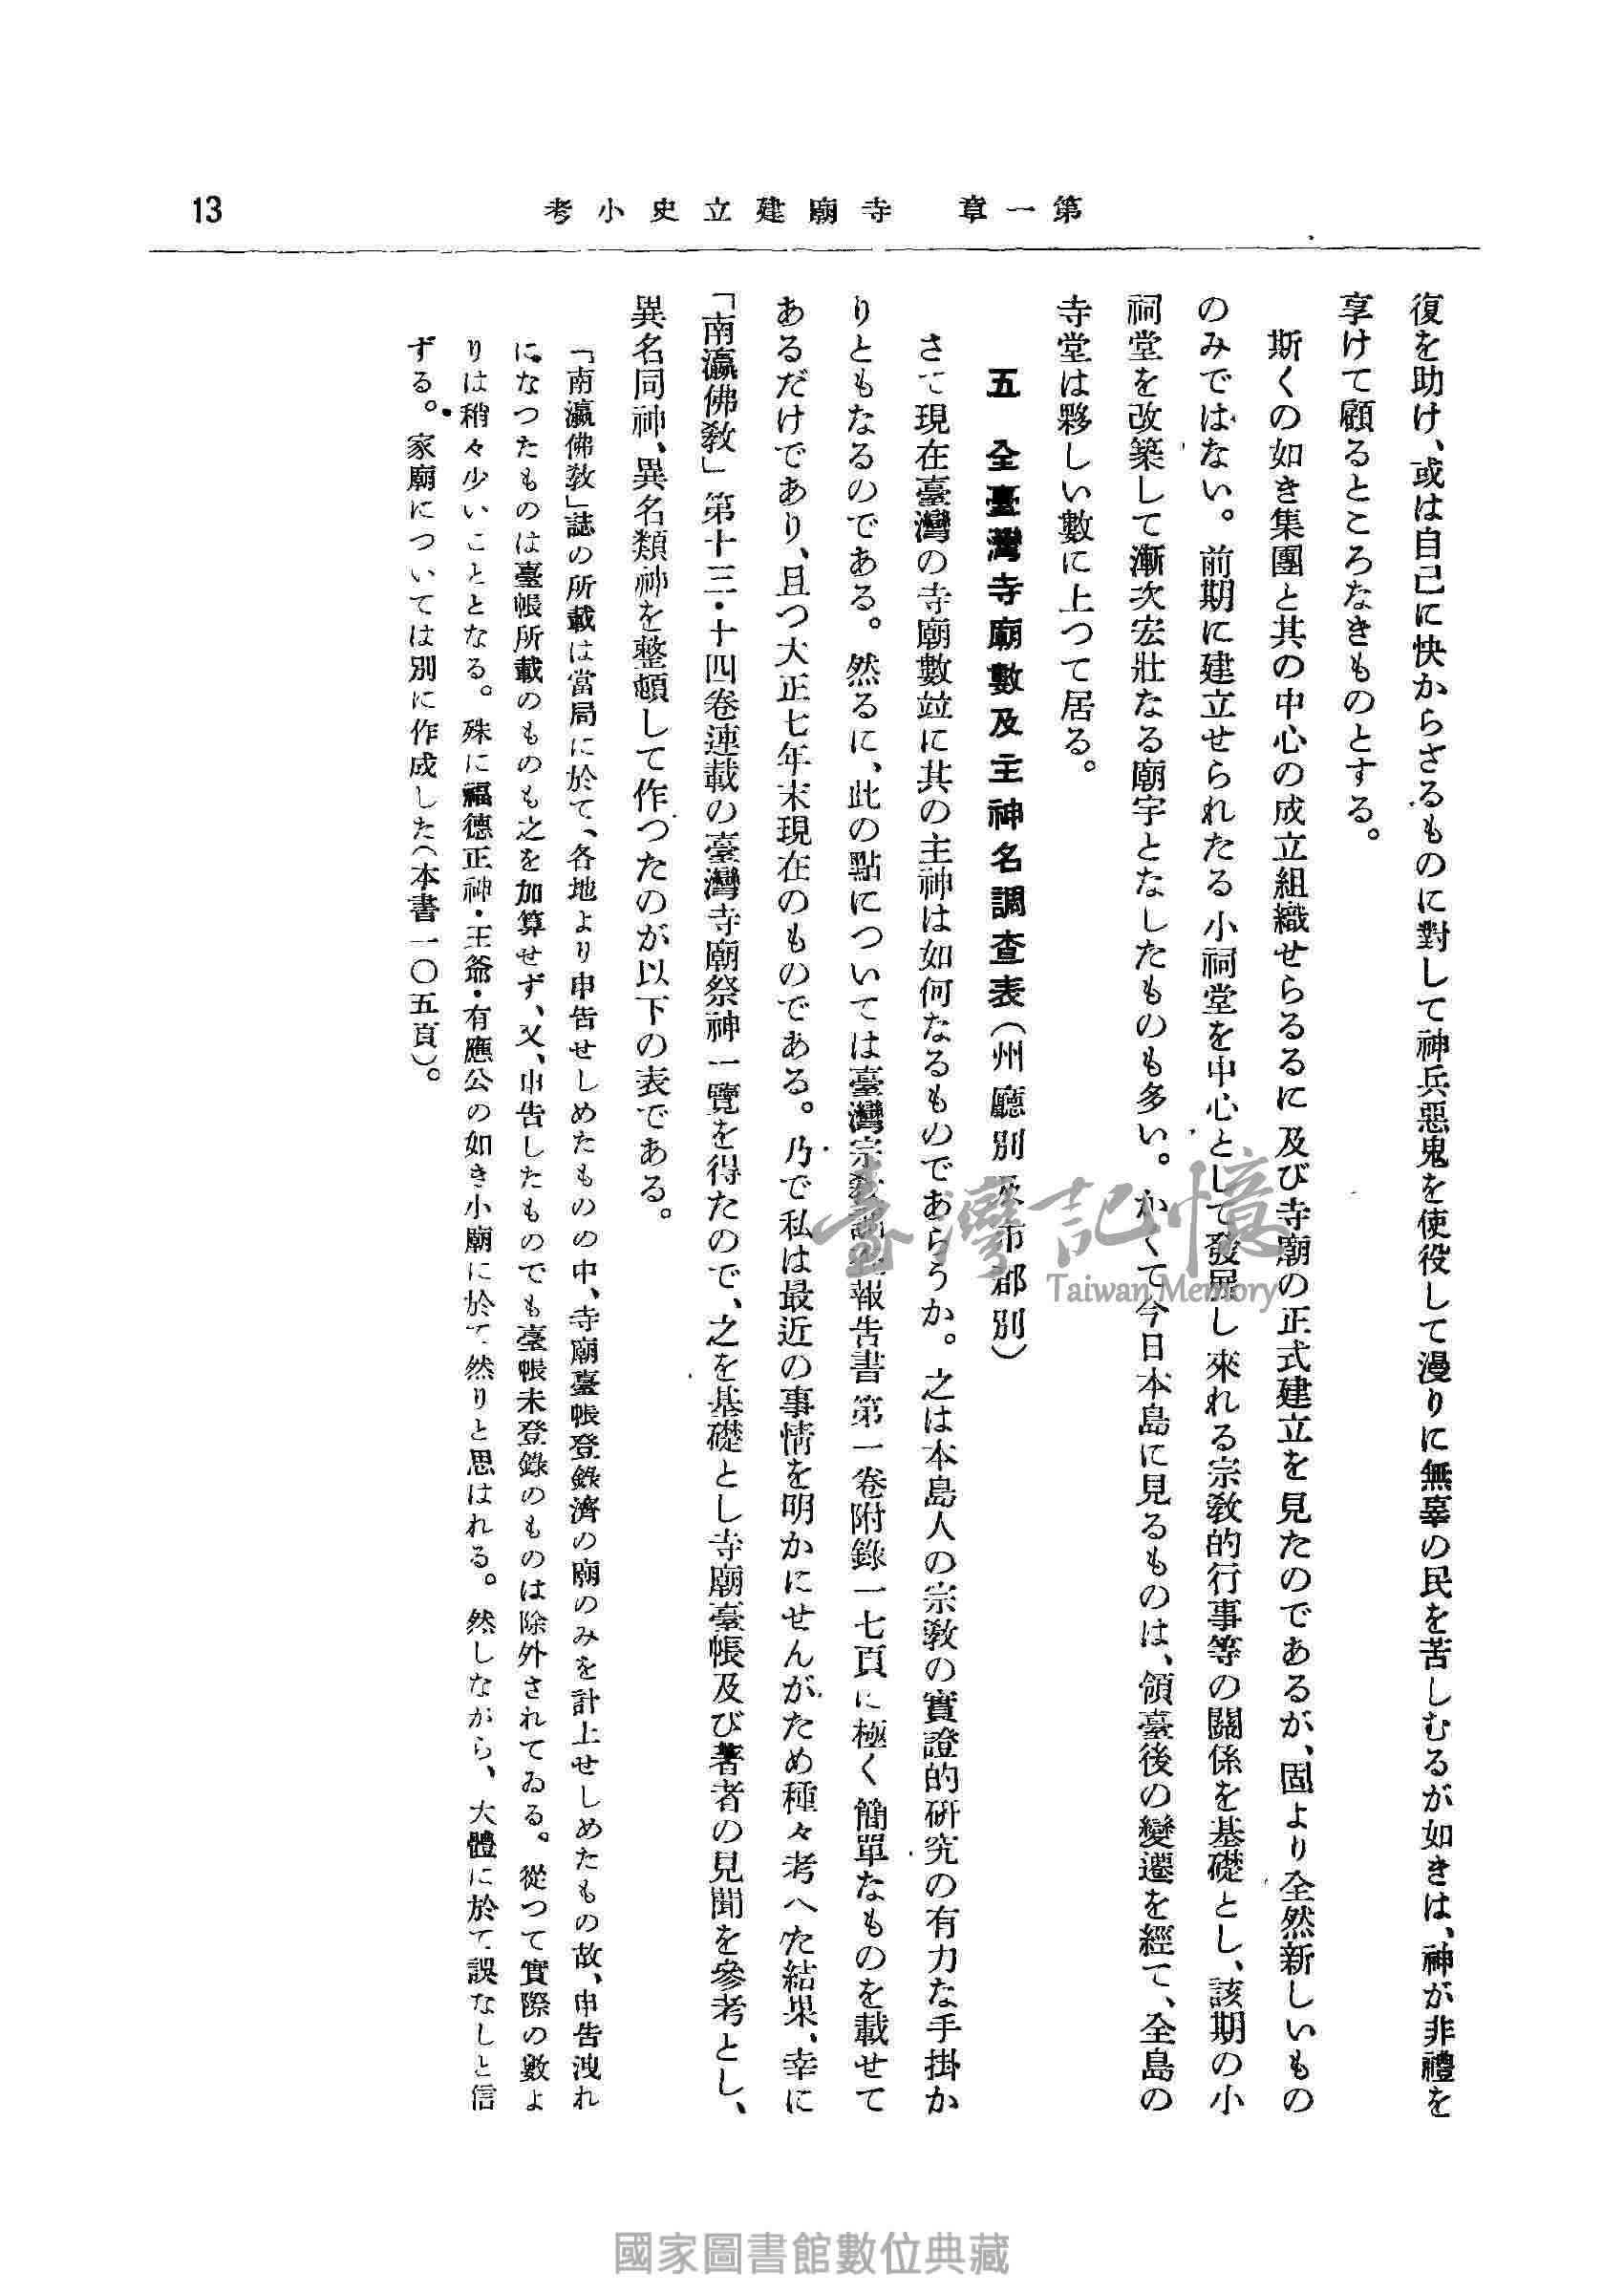 13
第一章　寺廟建立史小考
復を助け、或は自己に快からざるものに對して神兵惡鬼を使役して漫りに無辜の民を苦しむるが如きは、神が非禮を
享けて顧るところなきものとする。
斯くの如き集團と其の中心の成立組織せらるるに及び寺廟の正式建立を見たのであるが、固より全然新しいもの
のみではない。前期に建立せられたる小祠堂を中心として發展し來れる宗敎的行事等の關係を基礎とし、該期の小
祠堂を改築して漸次宏壯なる廟宇となしたものも多い。かくて今日本島に見るものは、領臺後の變遷を經て、全島の
寺堂は夥しい數に上つて居る。
五　全臺灣寺廟數及主神名調查表（州廳別及市郡別）
さて現在臺灣の寺廟數竝に其の主神は如何なるものであらうか。之は本島人の宗敎の實證的硏究の有力な手掛か
りともなるのである。然るに、此の點については臺灣宗敎調查報告書第一卷附錄一七頁に極く簡單なものを載せて
あるだけであり、且つ大正七年末現在のものである。乃で私は最近の事情を明かにせんがため種々考へた結果、幸に
「南瀛佛敎」第十三・十四卷連載の臺灣寺廟祭神一覽を得たので、之を基礎とし寺廟臺帳及び著者の見聞を參考とし、
異名同神、異名類神を整頓して作つたのが以下の表である。
「南瀛佛敎」誌の所載は當局に於て、各地より申告せしめたものの中、寺廟臺帳登錄濟の廟のみを計上せしめたもの故、申告洩れ
になつたものは臺帳所載のものも之を加算せず、又、申告したものでも臺帳未登錄のものは除外されてゐる。從つて實際の數よ
りは稍々少いこととなる。殊に福德正神・王爺・有應公の如き小廟に於て然りと思はれる。然しながら、大體に於て誤なしと信
ずる。家廟については別に作成した（本書一〇五頁）。
臺灣記憶
Taiwan Memory
國家圖書館數位典藏